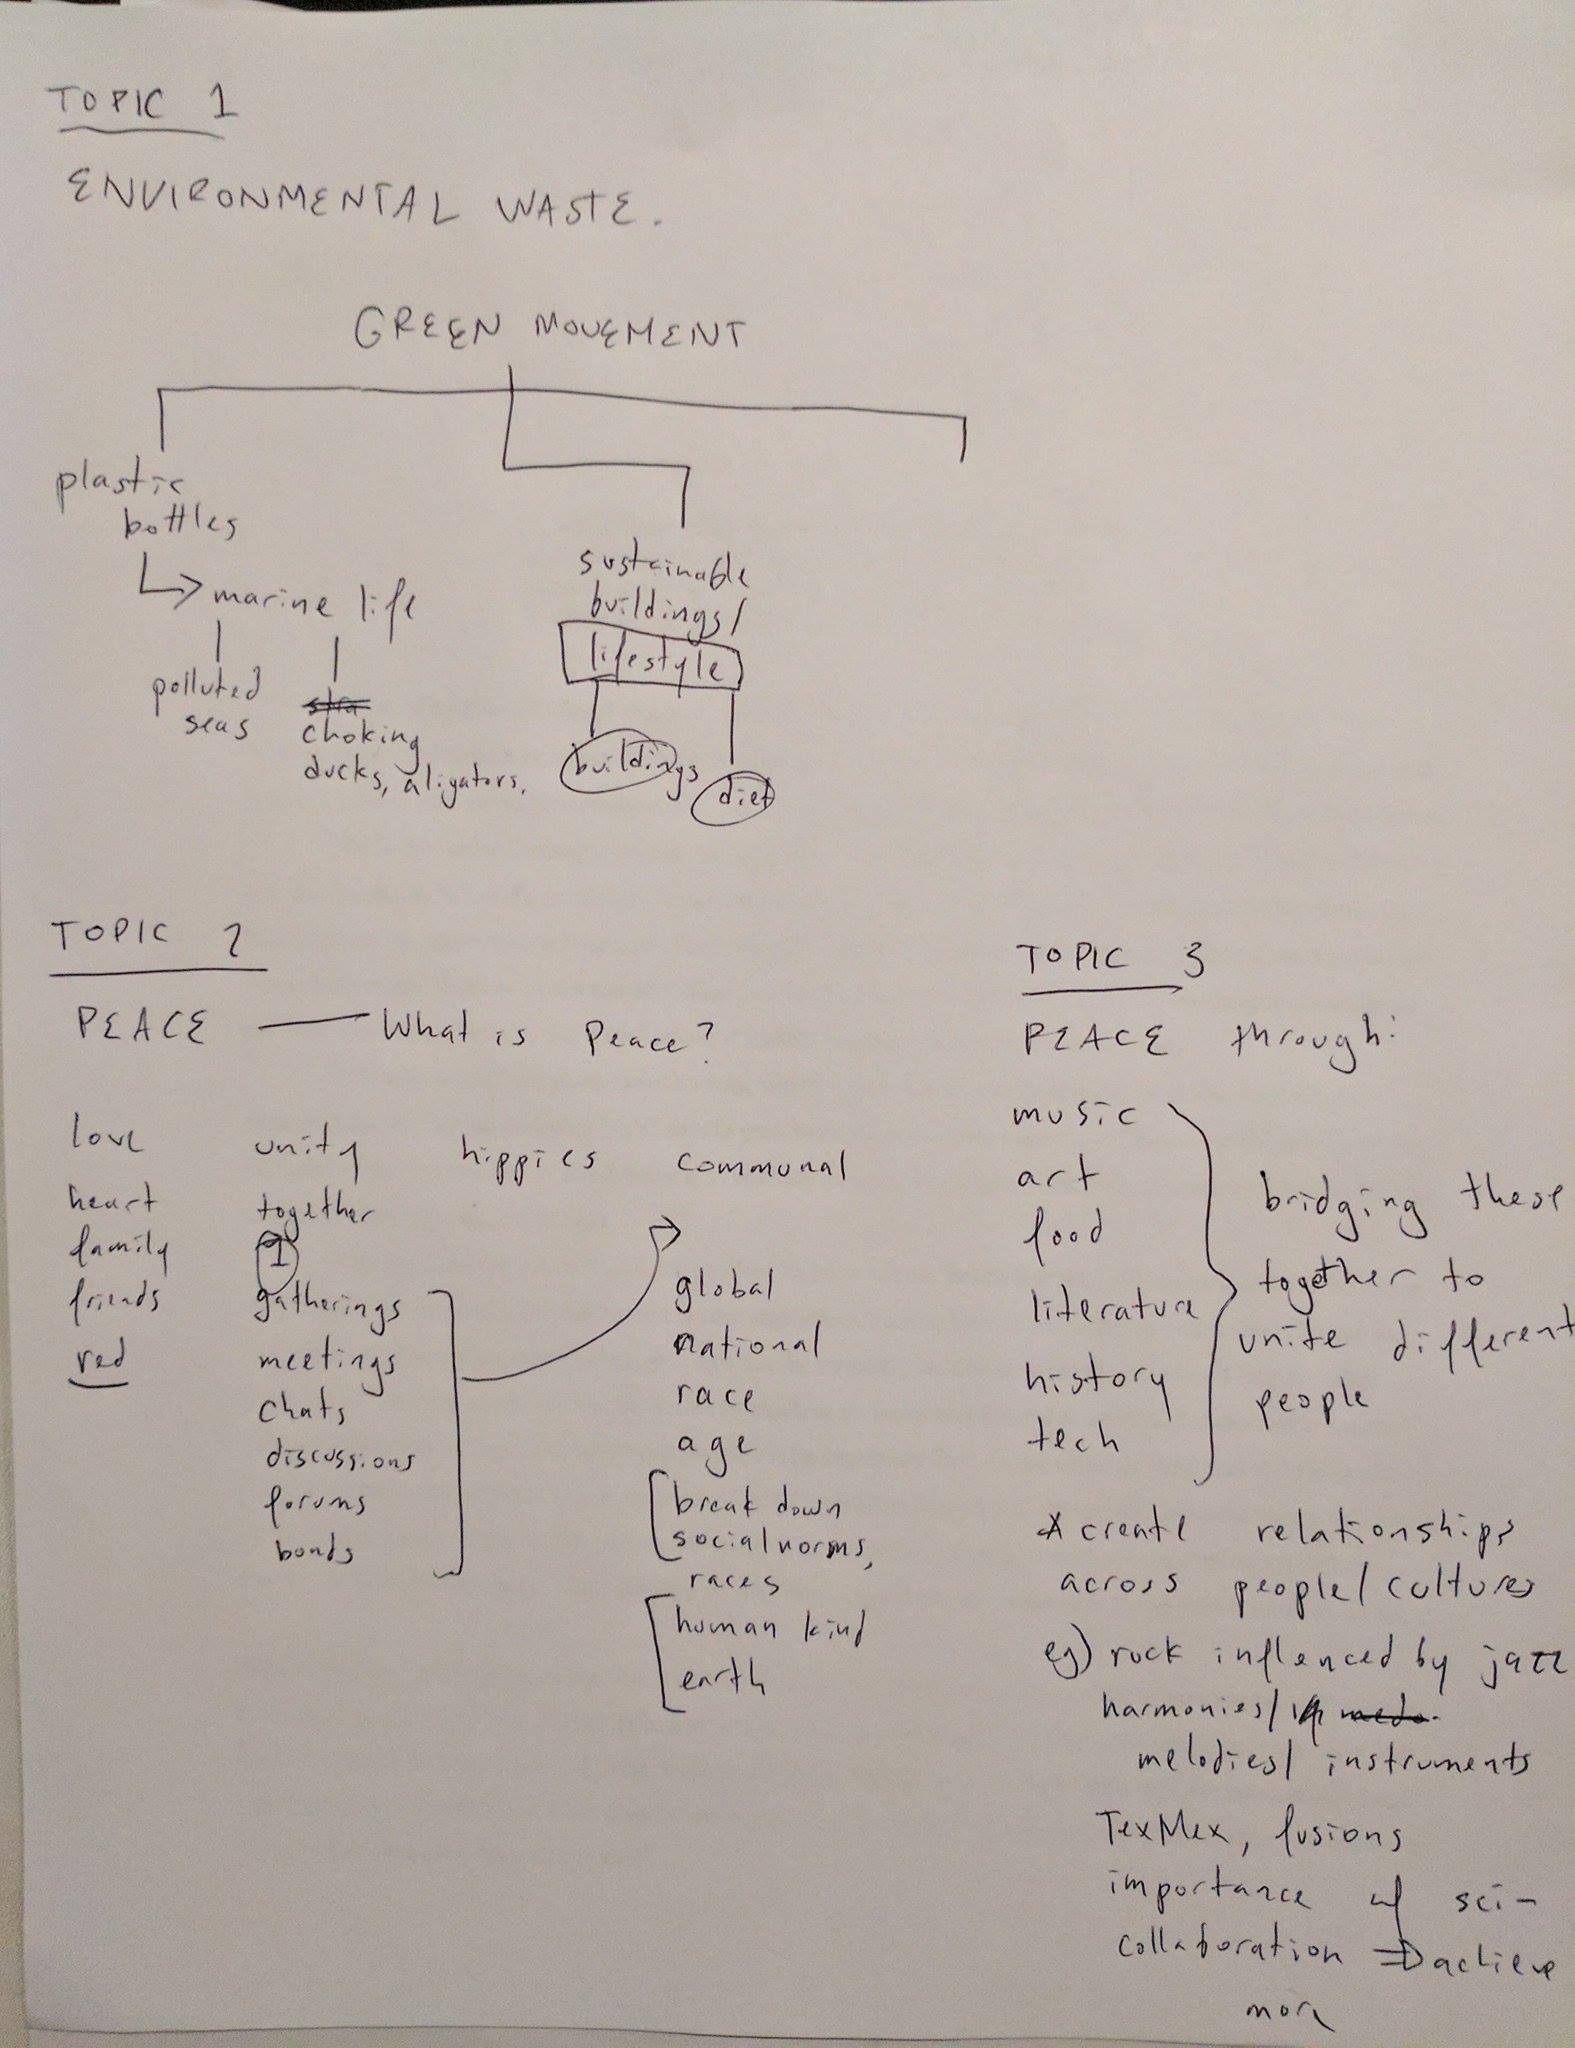 TOPIC 1
ENVIRONMENTAL WASTE.
GREEN MOVEMENT
plastic
bottles
marine life
polluted
seas
choking
ducks, aligators.
sustainable
buildings/
lifestyle
buildings
diet
TOPIC 2
PEACE — What is Peace?
love
heart
family
friends
red
unity
together
1
gatherings
meetings
chats
discussions
forums
bonds
hippies
communal
global
national
race
age
break down
social norms,
races
human kind
earth
TOPIC 3
PEACE through:
music
art
food
literature
history
tech
bridging these
together to
unite different
people
* create relationships
across people/cultures
eg) rock inflenced by jazz
harmonies/
melodies/ instruments
TexMex, fusions
importance w/ sci-
collaboration ⇒ achieve
more